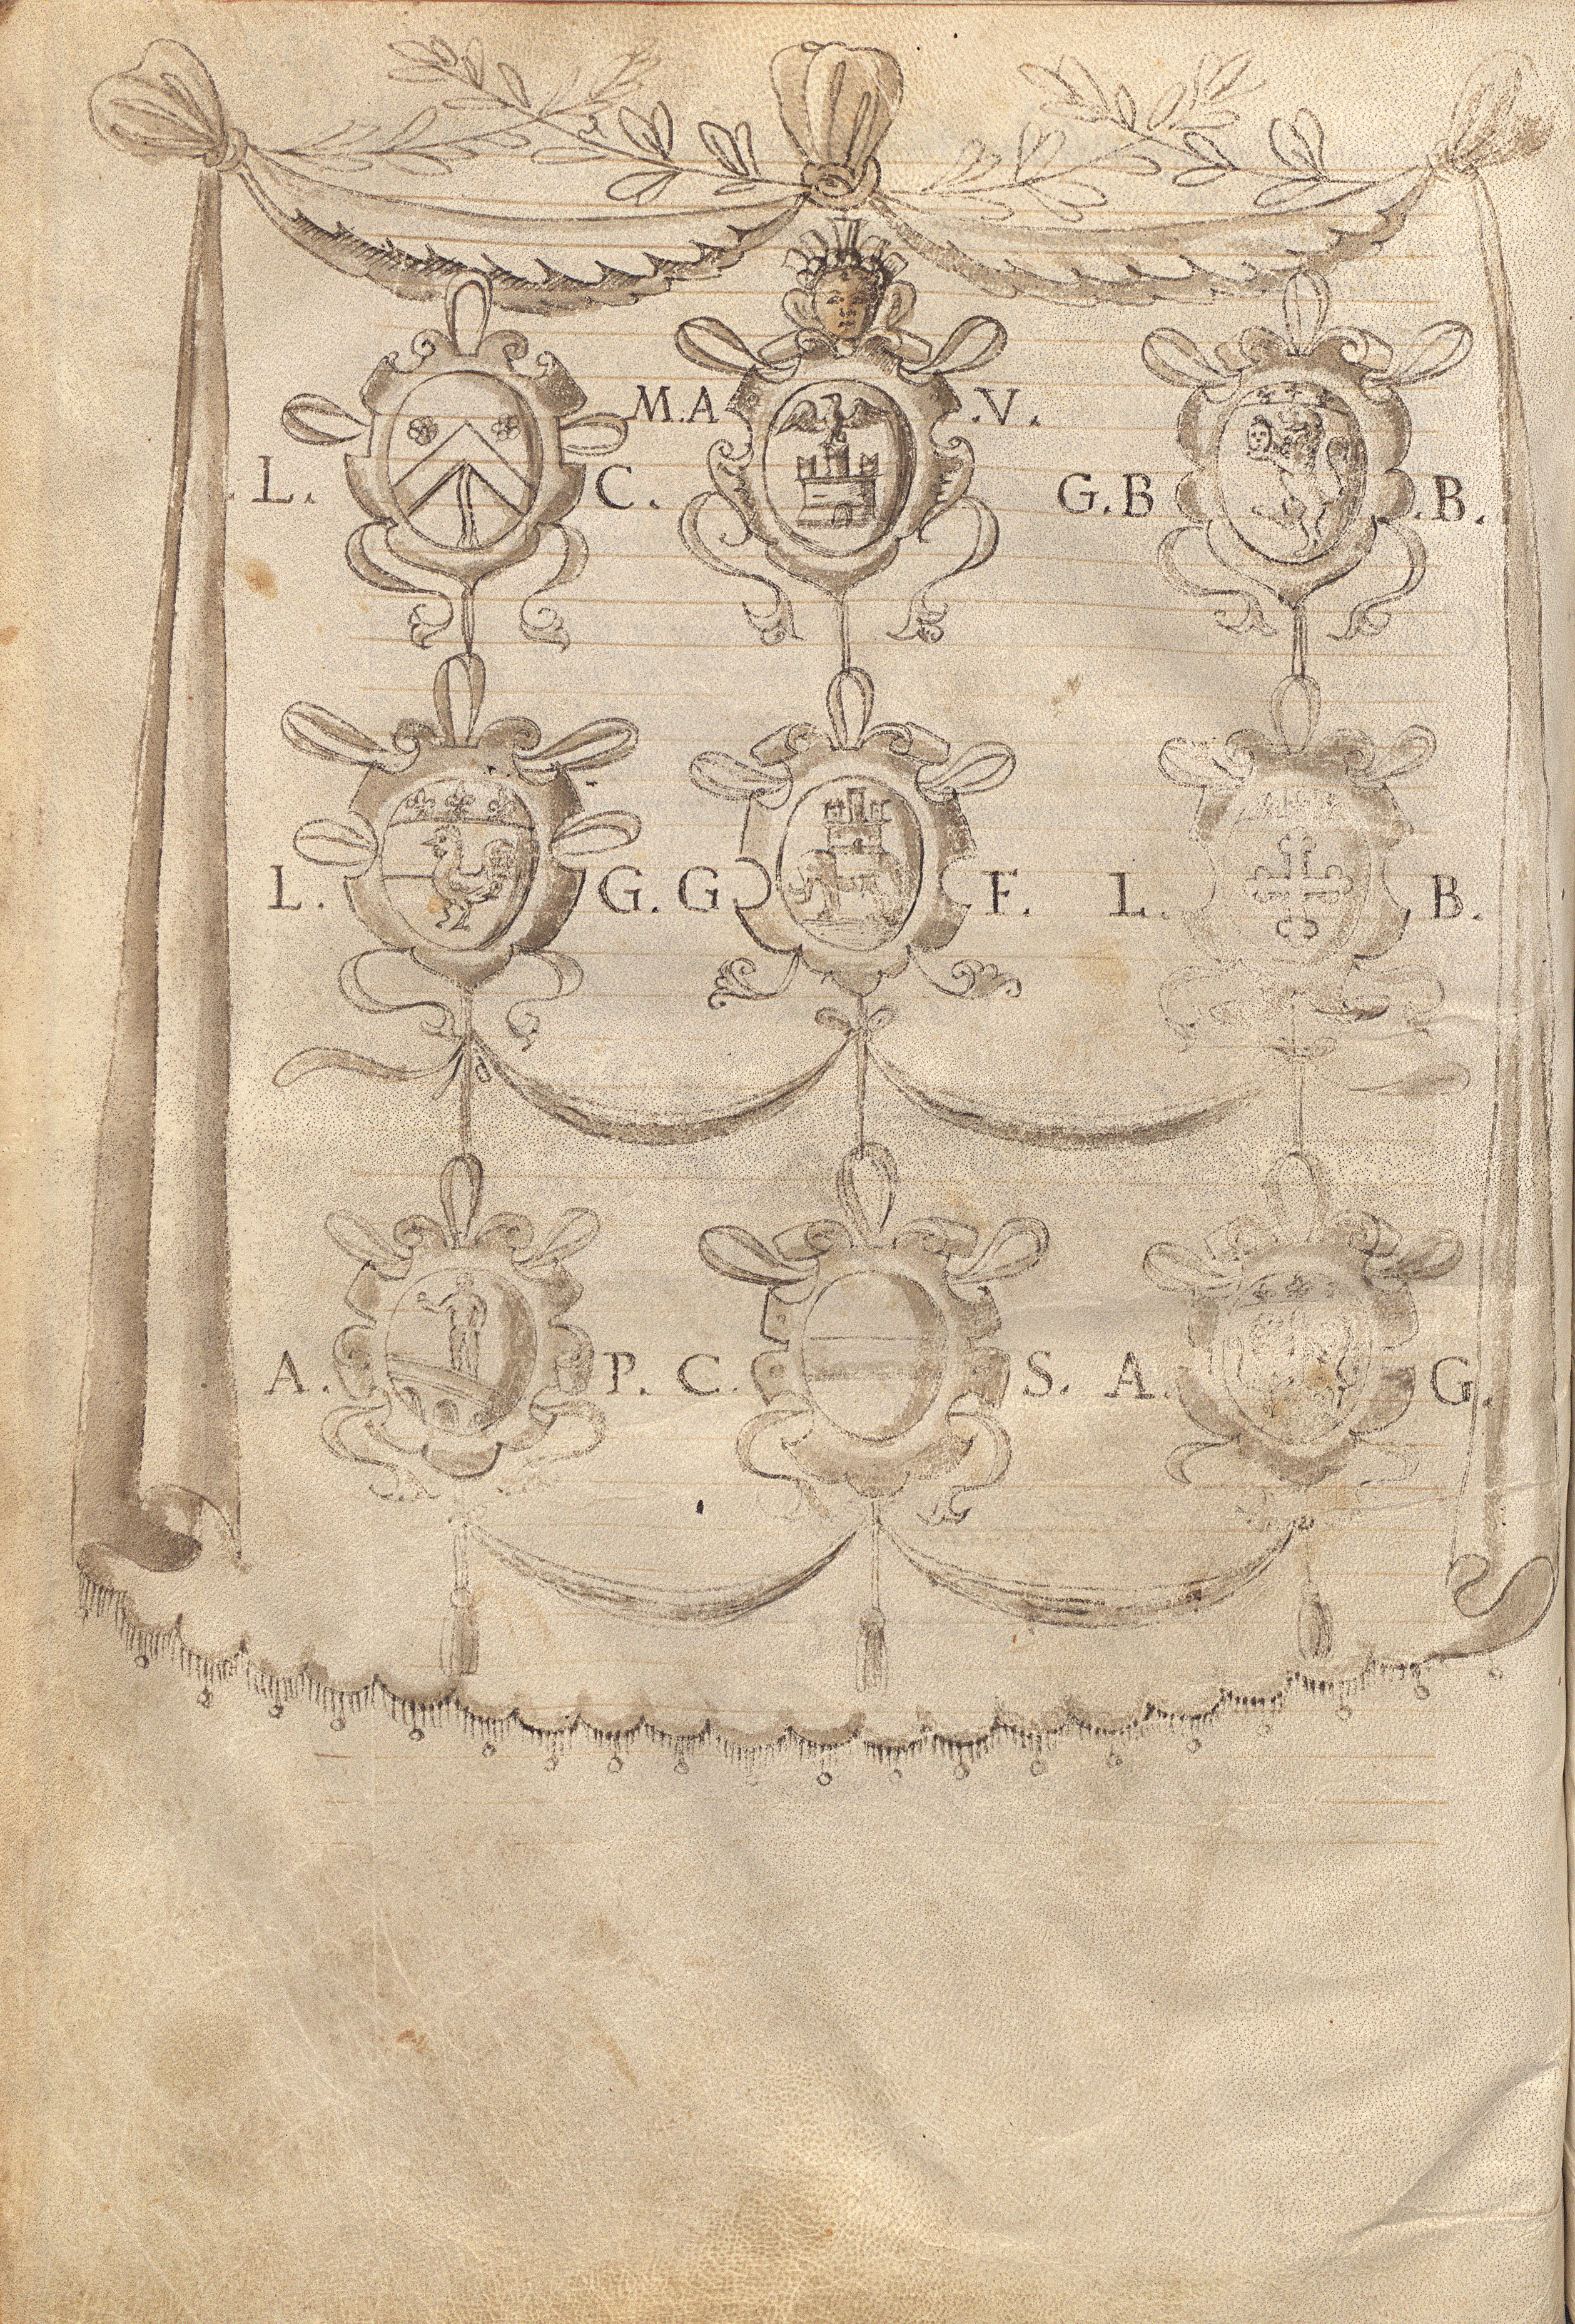 M.A .V.
.L. C. G.B .B.
L. G. G. F. L. B.
A. P. C. S. A. G.